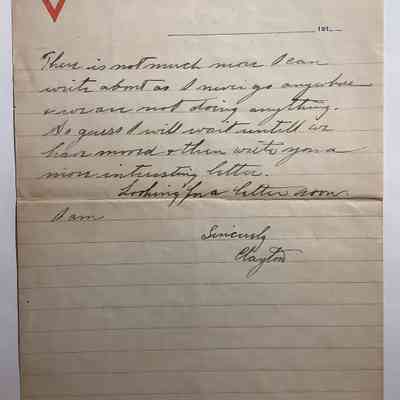 191
There is not much more I can
write about as I never go anywhere
+ we are not doing anything.
So guess I will wait untill we
have moved + then write you a
more interesting letter.
Looking for a letter soon.
I am
Sincerely
Clayton